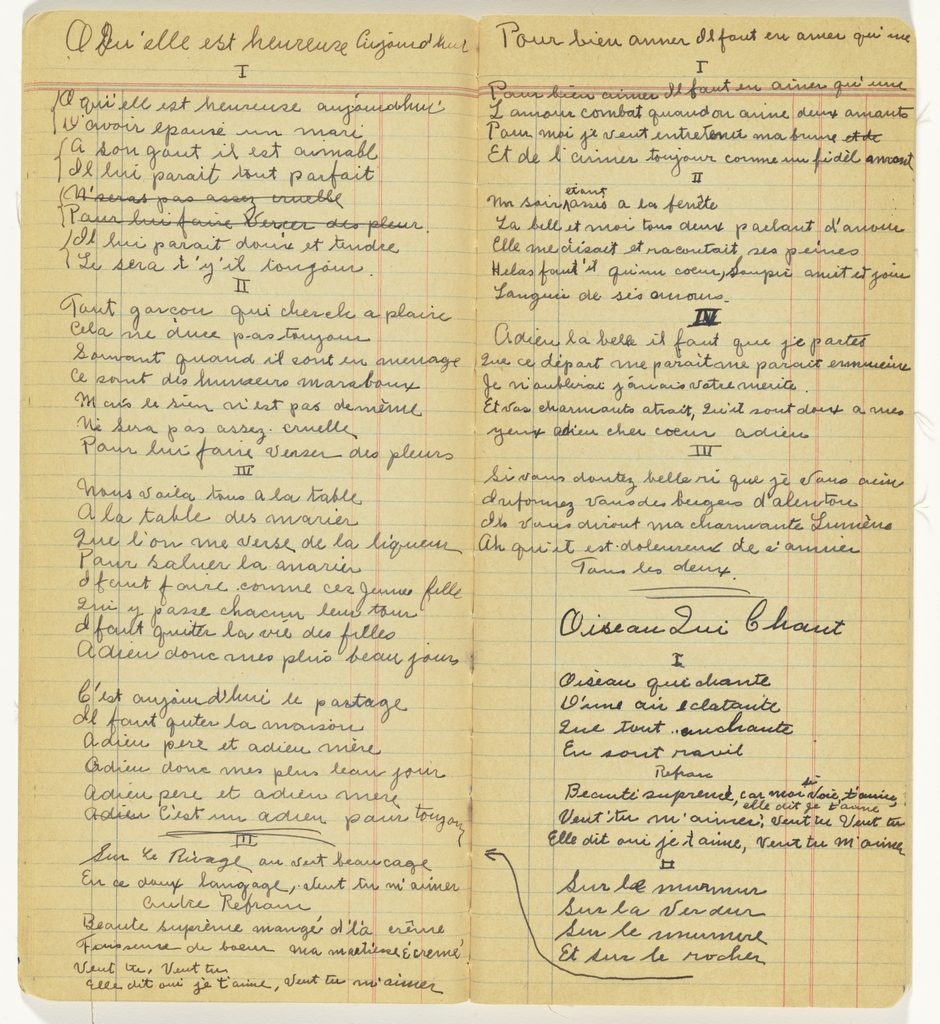 O Qu'elle est heureuse Aujourd'hui
I
O qu'ell est heureuse aujourdhui
D'avoir épousé un mari
A son gout il est aimabl
Il lui parait tout parfait
N'seras pas assez cruelle
Pour lui faire Verser des pleur.
Il lui parait doux et tendre
Le sera t'y'il toujour.
II
Tout garcon qui cherch a plaire
Cela ne dure pas toujour
Souvant quand il sont en menage
Ce sont des humeurs maraboux
Mais le sien n'est pas de même
Ne sera pas assez cruelle
Pour lui faire verser des pleurs
III
Nous voila tous a la table
A la table des marier
Que l'on me verse de la liqueur
Pour saluer la marier
Il faut faire comme ces Jeunes fille
Qui y passe chacun leur tour
Il faut quiter la vie des filles
Adieu donc mes plus beau jours
C'est aujourd'hui le partage
Il faut quter la maison
Adieu pere et adieu mère
Adieu donc mes plus beau jour
Adieu pere et adieu mere
Adieu C'est un adieu pour toujour
III
Sur Le Rivage au vert beaucage
En ce doux langage, veut tu m'aimer
Autre Refrain
Beaute suprème mangé d'la crême
Fouseuse de boeur ma maitresse écremé
Veut tu, Veut tu
Elle dit oui je t'aime, Veut tu m'aimer
Pour bien aimer Il faut en aimer qu'une
I
Pour bien aimer Il faut en aimer qu'une
L'amour combat quand on aime deux amants
Pour moi je veut entretenir ma brune et de
Et de l'aimer toujour comme un fidèl amant
II
Un soir étant assis a la fenête
La bell et moi tous deux parlant d'amour
Elle me disait et racontait, ses peines
Helas faut'il qu'un coeur, Soupir amit et jour
Languir de ses amours.
III
Adieu la belle il faut que je partes
Que ce départ me parait me parait ennuieux
Je n'oublirai jamais votre merite.
Et vos charmants atrait, Qu'il sont doux a mes
yeux adieu cher coeur adieu
IV
Si vous doutez belle ri que je vous aim
Informez vous des bergers d'alentour
Ils vous diront ma charmante Lumière
Ah qu'il est doleureux de s'aimer
Tous les deux.
Oiseau Qui Chant
I
Oiseau qui chante
D'une air eclatante
Que tout enchante
En sont ravil
Refrain
Beauté supreme, car moi si Vois, t'aime,
elle dit je t'aime
Veut'tu m'aimer, veut tu Veut tu
Elle dit oui je t'aime, Veut tu m'aimer
II
Sur le murmur
Sur la Verdur
Sur le mumure
Et sur le rocher